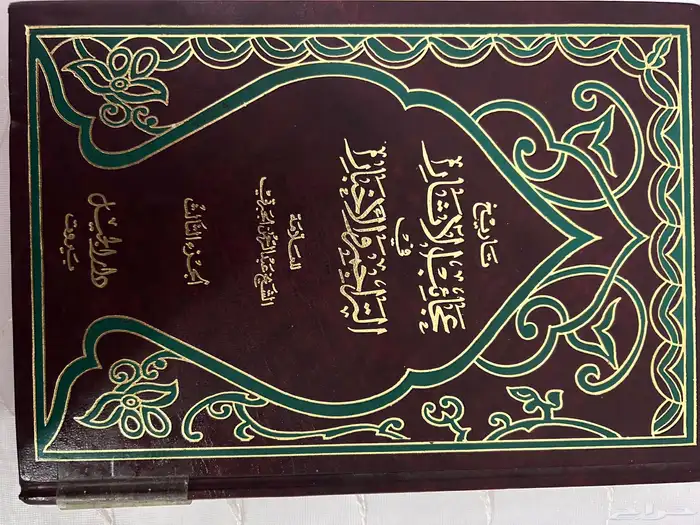 تاريخ
عجائب الآثار
في
التراجم والأخبار
للعلامة
الشيخ عبد الرحمن الجبرتي
الجزء الثالث
دار الجيل
بيروت
حراج